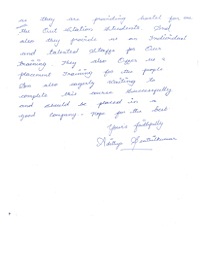 as they are providing hostel for me
the Out Station Students. And
also they provide us an Individual
and talented Staffs for Our
training. They also Offer us a
placement training for the people
I'm also eagerly waiting to
complete this course Successfully
and should be placed in a
good company. Hope for the best
Yours faithfully
Aditya